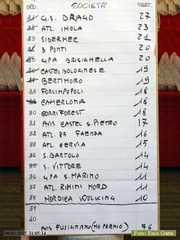 SOCIETA'
G.S. DRAGO 27
ATL IMOLA 23
SIDERMEC 21
3 PONTI 20
GPA BRISIGHELLA 20
CASTELBOLOGNESE 19
BERTINORO 19
FORLIMPOPOLI 18
CAMERLONA 18
GORRIFOREST 18
AVIS CASTEL S. PIETRO 17
ATL 85 FAENZA 16
ATL CERVIA 15
S. BARTOLO 14
S. VITTORE 14
GPA S. MARINO 11
ATL RIMINI NORD 11
NORDICA WALKING 10
AVIS FUSIGNANO (NO PREMIO) 76